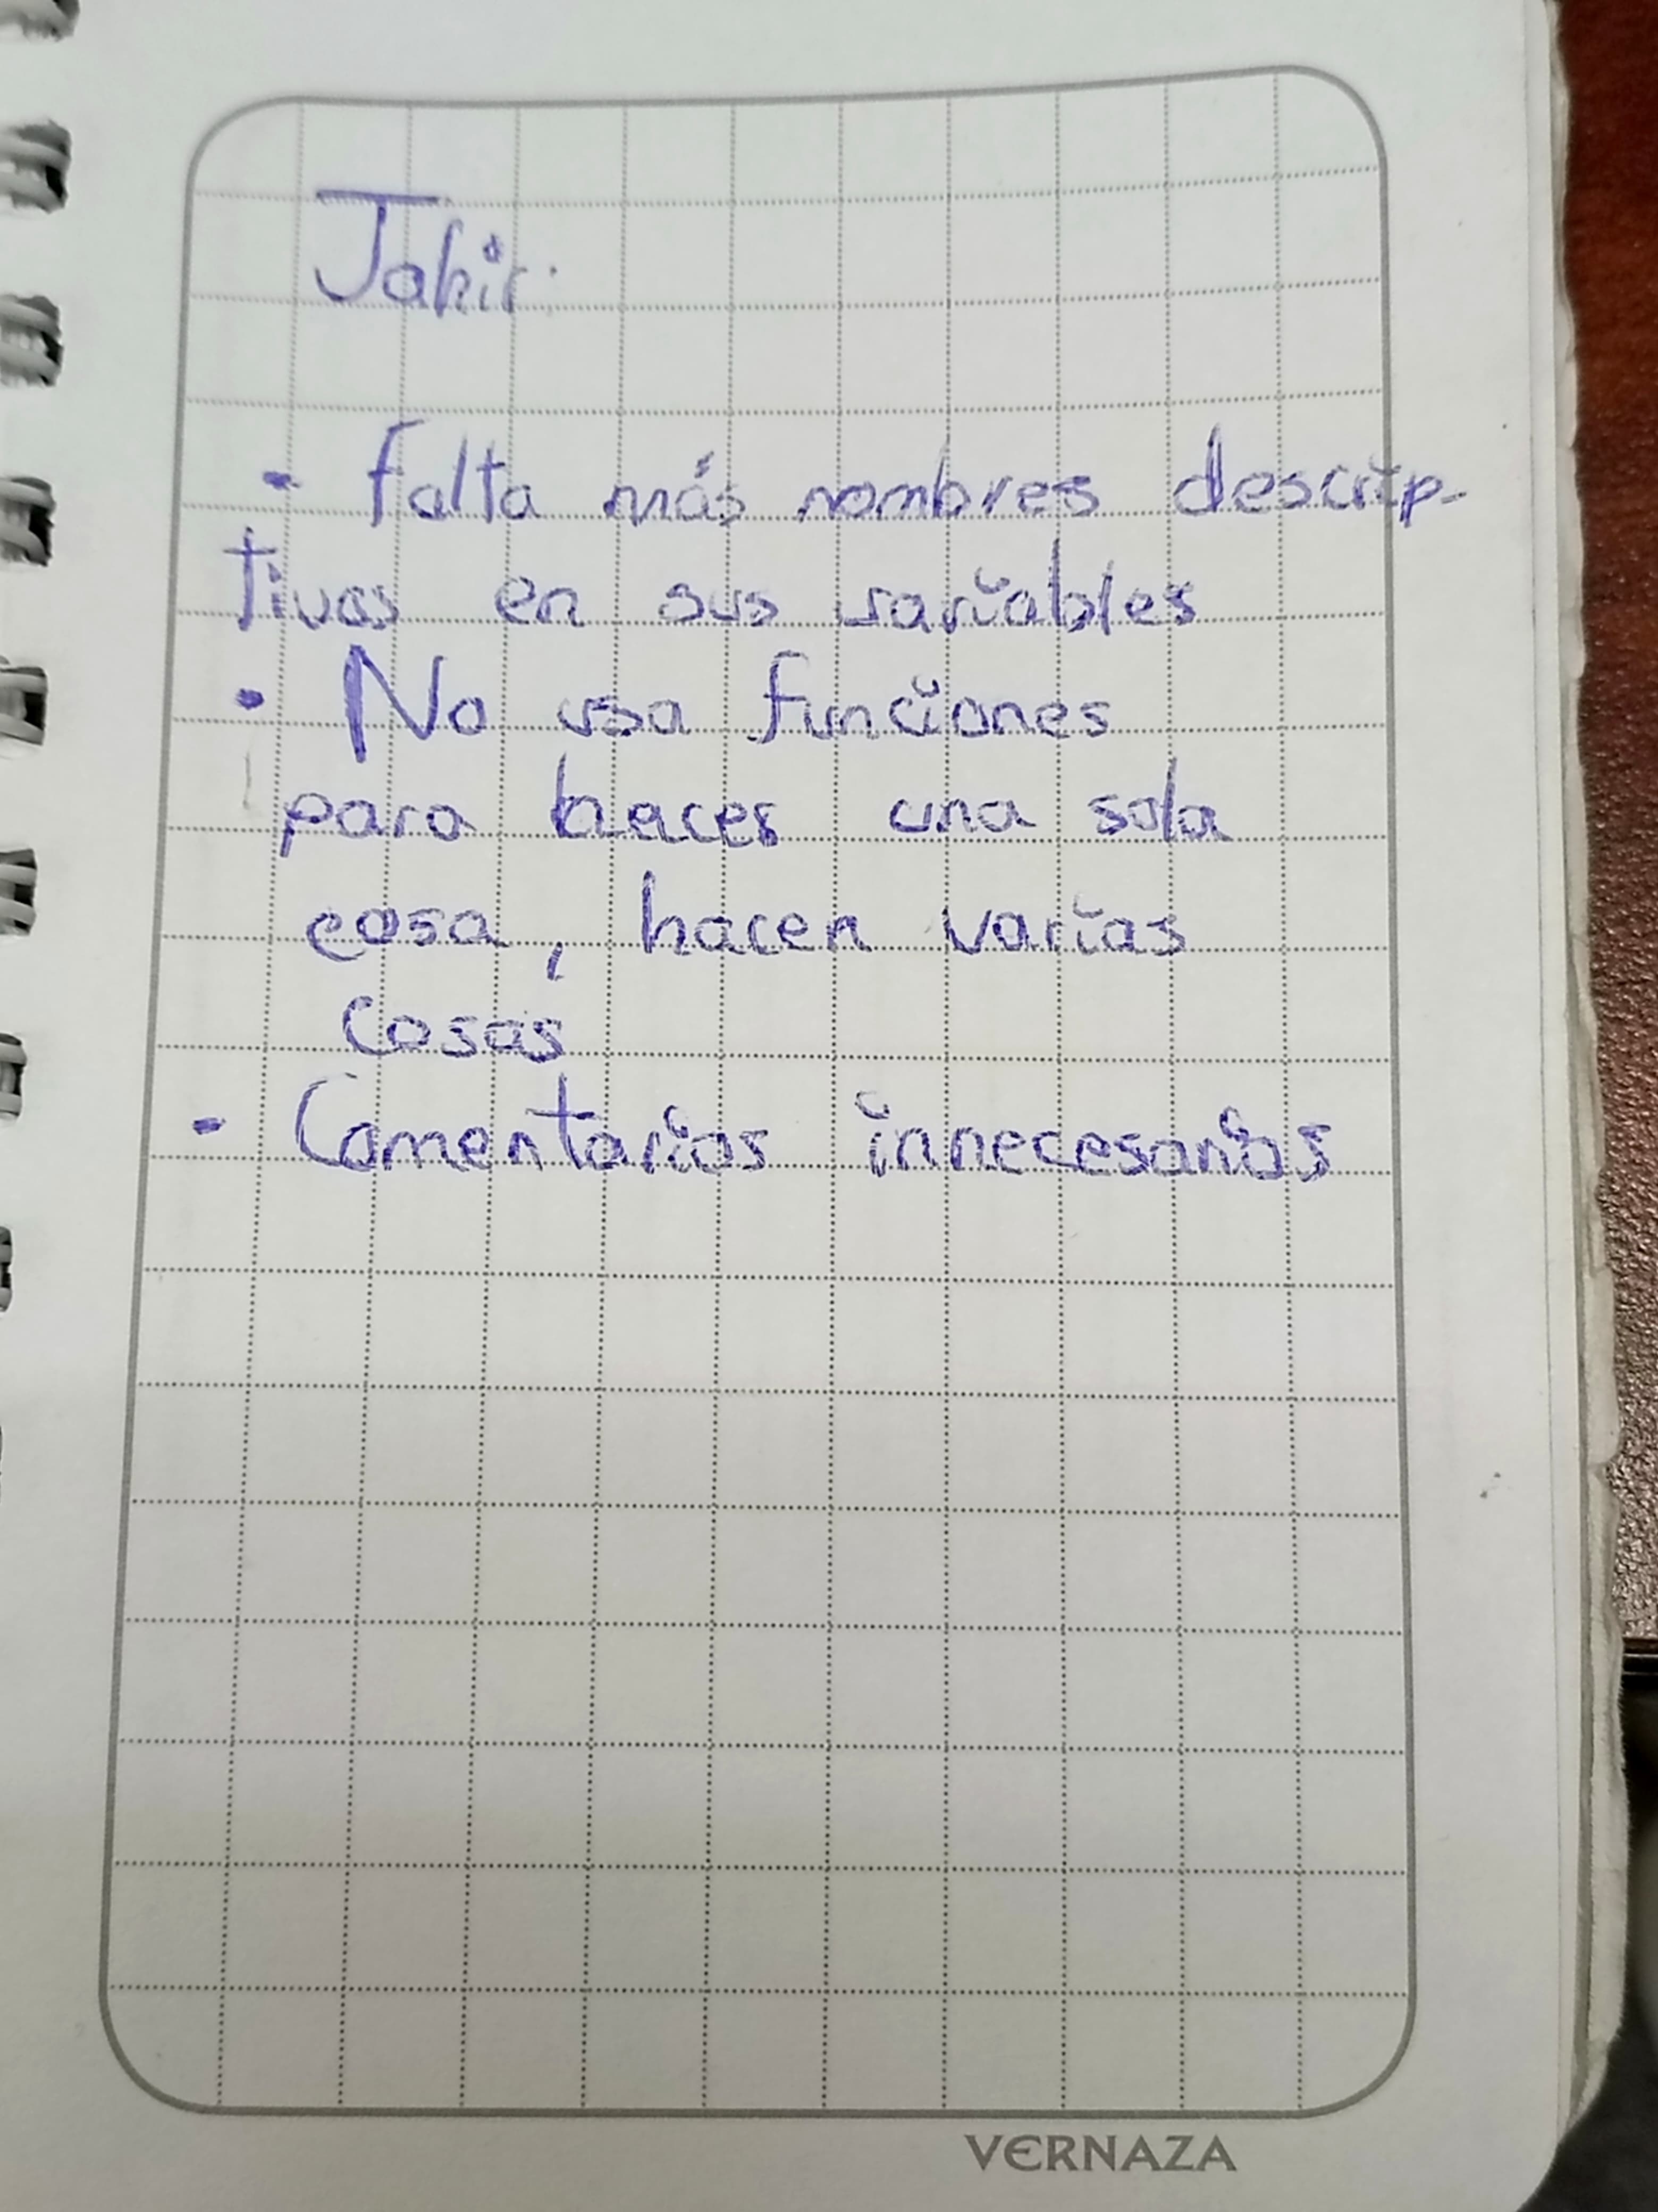 Jahir.
- falta más nombres descrip-
tivos en sus variables
• No usa funciones
para haces una sola
cosa, hacen varias
cosas
- Comentarios innecesarios
VERNAZA